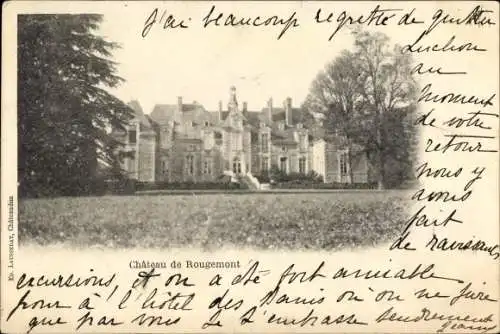 J'ai beaucoup regretté de quitter
Luchon
au
moment
de votre
retour.
nous y
avons
fait
de ravissantes
excursions, et on a été fort aimable
pour nous
à l'hôtel des Bains où on ne jurait
que par vous. Je t'embrasse tendrement
Château de Rougemont